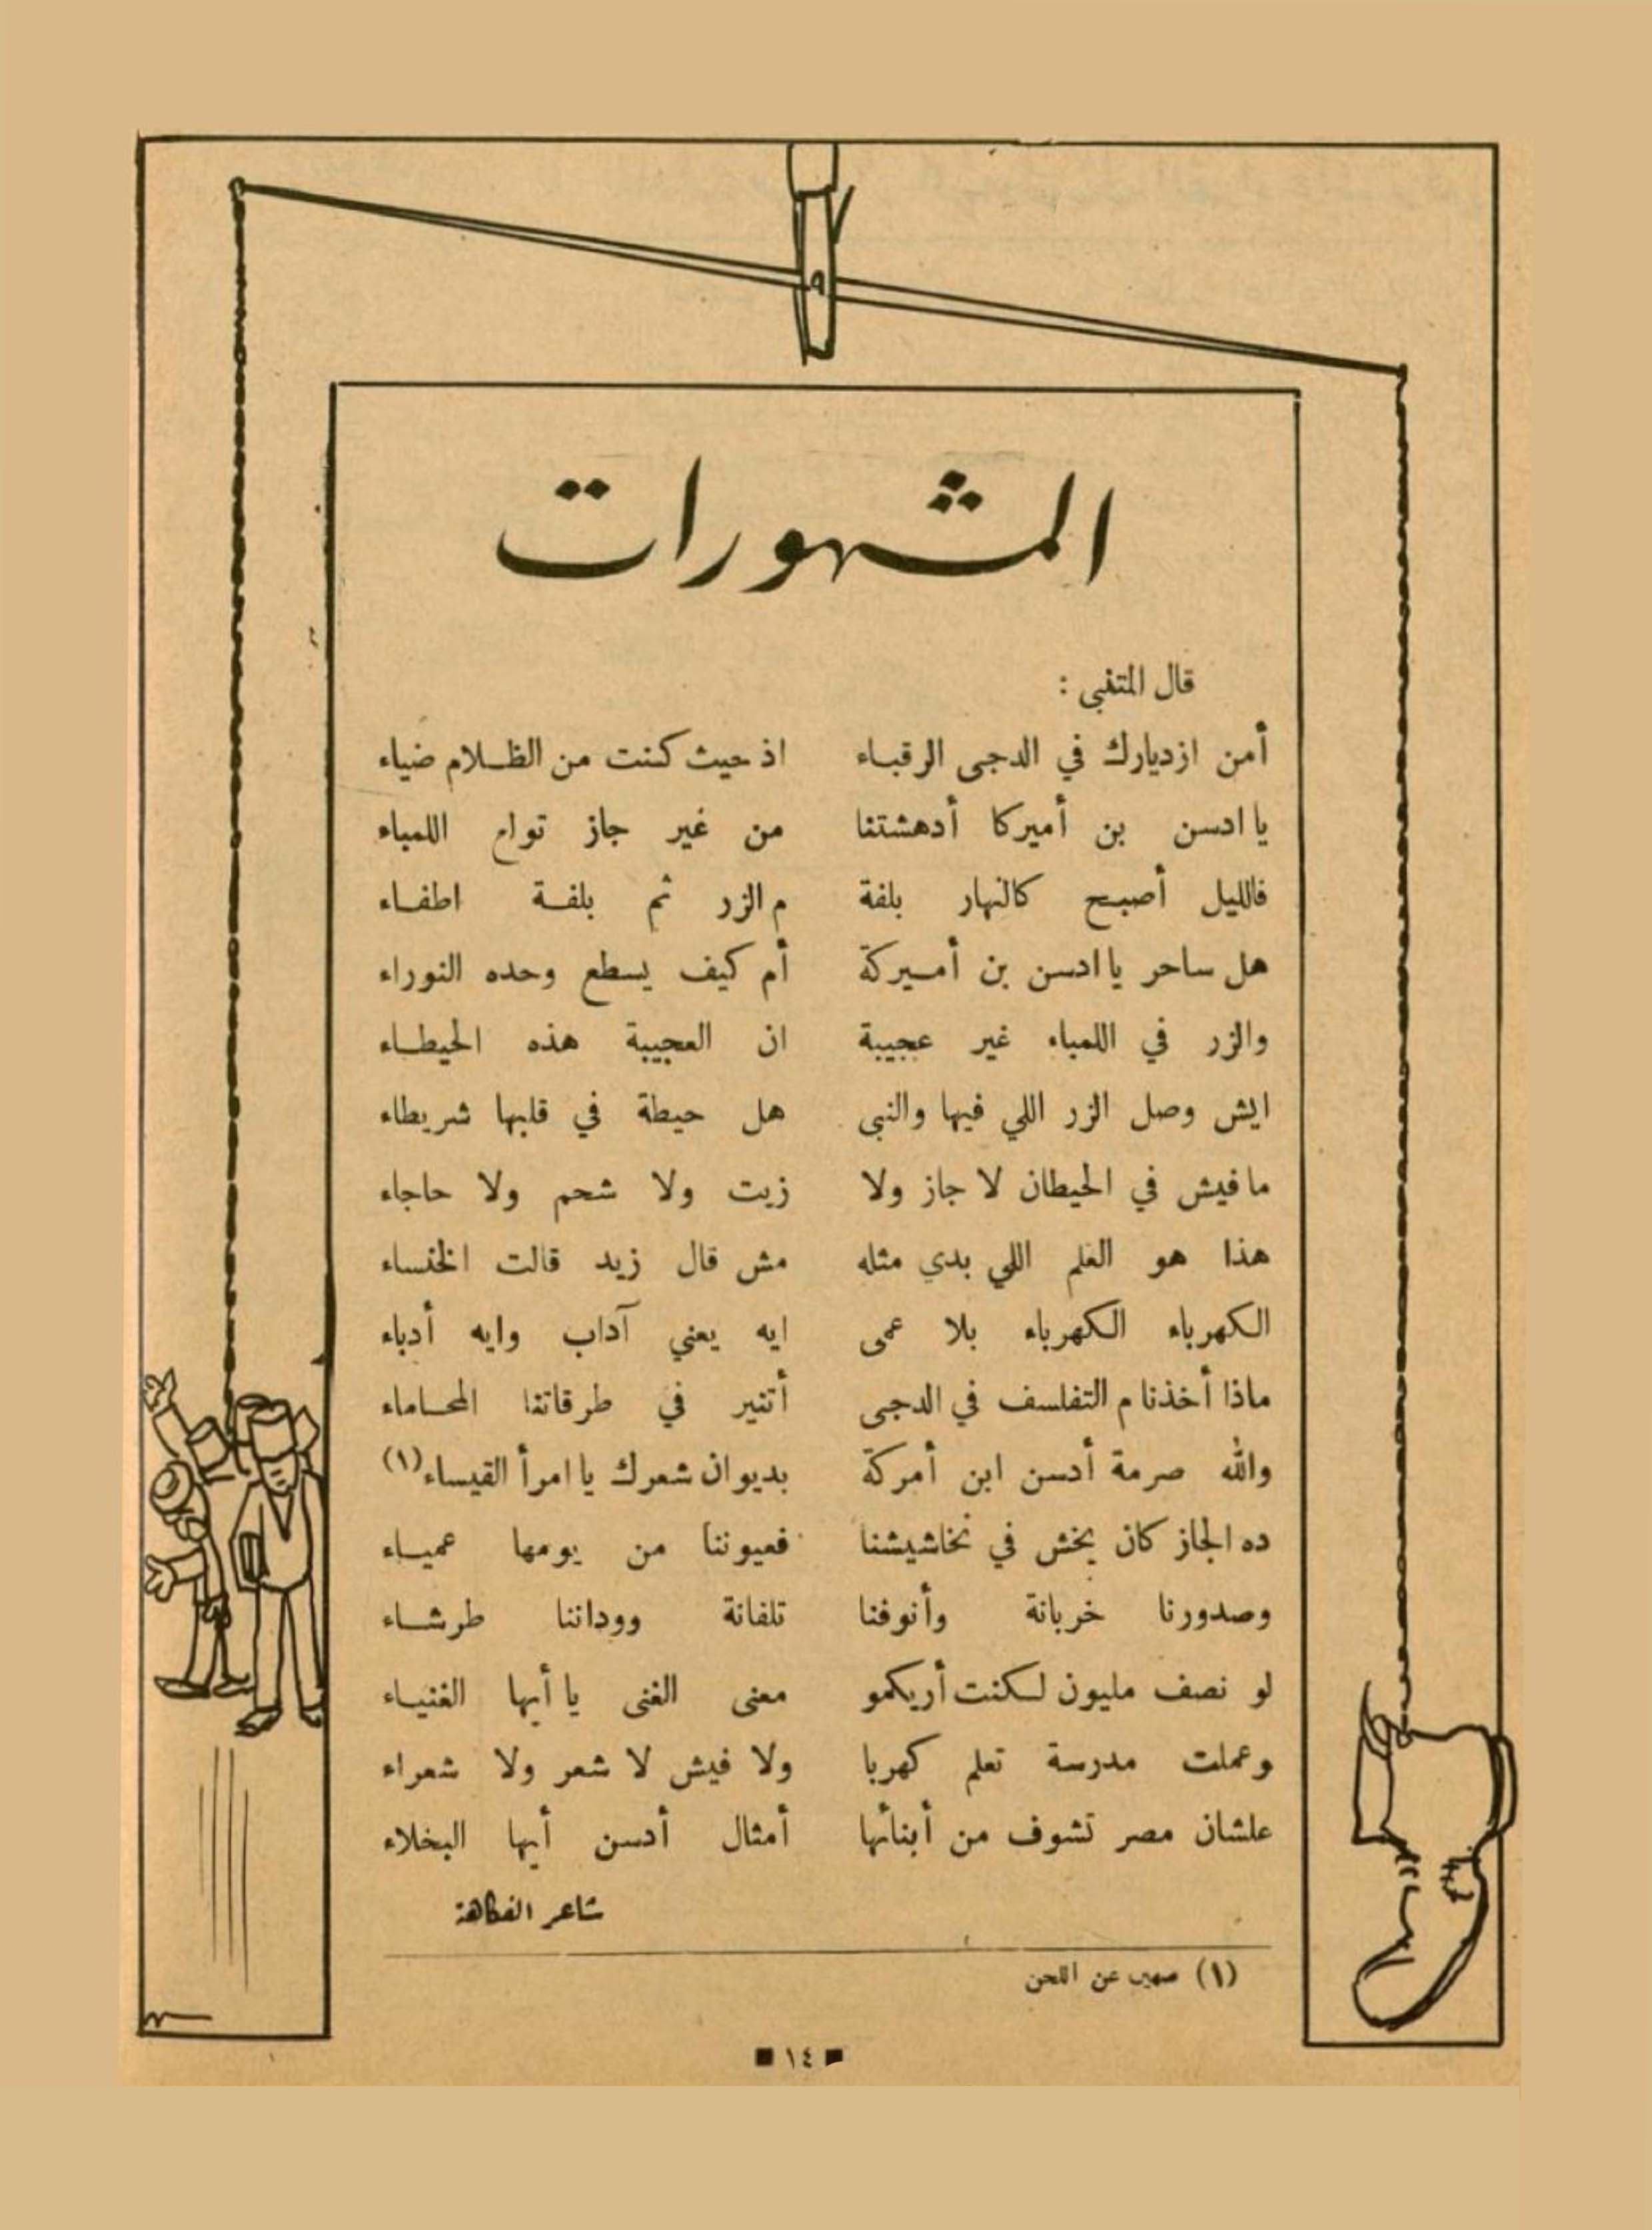 المشهورات
قال المتنبى :
أمن ازديارك في الدجى الرقباء اذ حيث كنت من الظلام ضياء
يا ادسن بن أميركا أدهشتنا من غير جاز توام اللمباء
فالليل أصبح كالنهار بلفة م الزر ثم بلفة اطفاء
هل ساحر يا ادسن بن أميركة أم كيف يسطع وحده النوراء
والزر في اللمباء غير عجيبة ان العجيبة هذه الحيطاء
ايش وصل الزر اللي فيها والنبى هل حيطة في قلبها شريطاء
مافيش في الحيطان لا جاز ولا زيت ولا شحم ولا حاجاء
هذا هو العلم اللي بدي مثله مش قال زيد قالت الخنساء
الكهرباء الكهرباء بلا عمى ايه يعني آداب وايه أدباء
ماذا أخذنا م التفلسف في الدجى أتنير في طرقاتنا المحاماء
والله صرمة أدسن ابن أمركة بديوان شعرك يا امرأ القيساء (١)
ده الجاز كان يخش في نخاشيشنا فعيوننا من يومها عمياء
وصدورنا خربانة وأنوفنا تلفانة وودانﻨا طرشاء
لو نصف مليون لكنت أريكمو معنى الغنى يا أيها الغنياء
وعملت مدرسة تعلم كهربا ولا فيش لا شعر ولا شعراء
علشان مصر تشوف من أبنائها أمثال أدسن أيها البخلاء
شاعر الفكاهة
(١) صهين عن اللحن
١٤